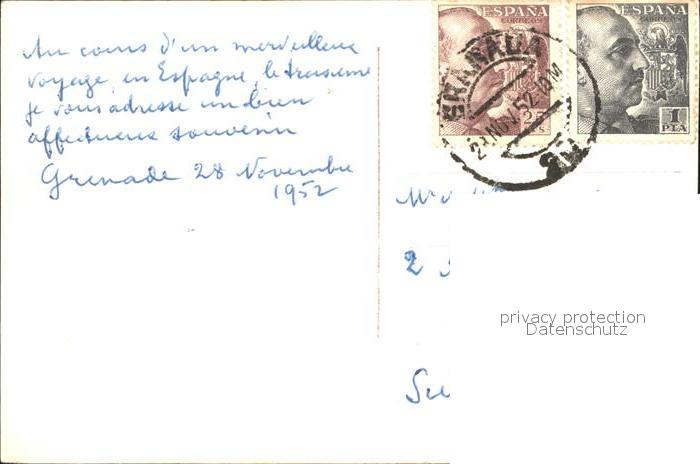 Au cours d'un merveilleux
voyage, en Espagne, le troisième
je vous adresse un bien
affectueux souvenir
Grenade 28 Novembre
1952
ESPAÑA
CORREOS
25
CTS
ESPAÑA
CORREOS
1
PTA
GRANADA
NOV 52
2
privacy protection
Datenschutz